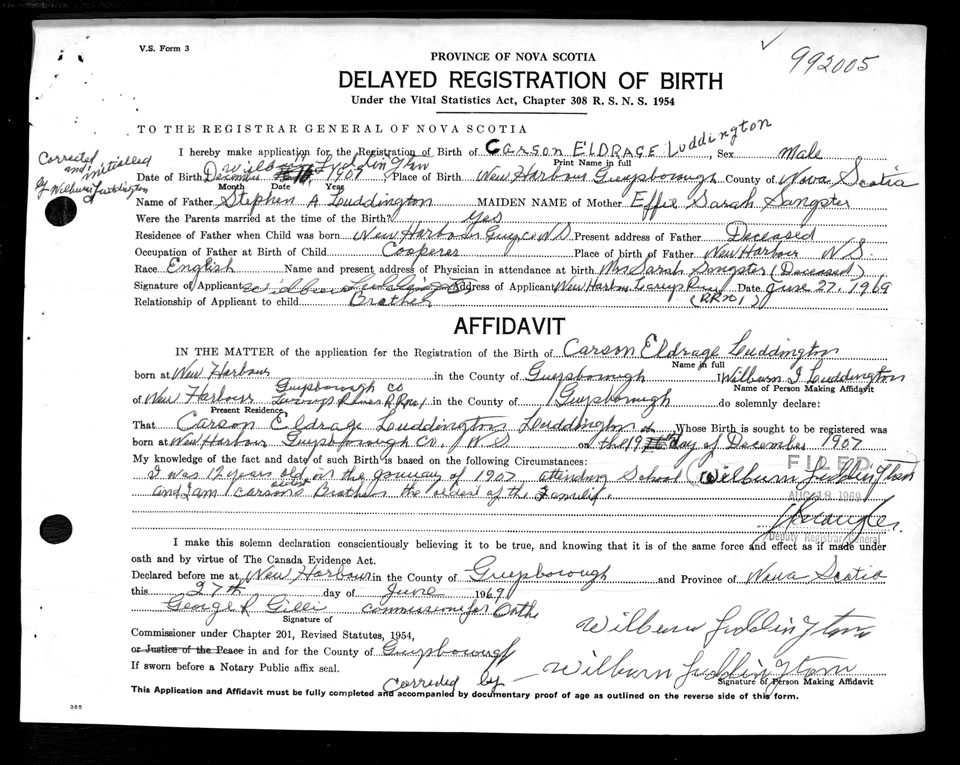 V.S. Form 3
992005
PROVINCE OF NOVA SCOTIA
DELAYED REGISTRATION OF BIRTH
Under the Vital Statistics Act, Chapter 308 R. S. N. S. 1954
TO THE REGISTRAR GENERAL OF NOVA SCOTIA
Corrected and initialled by Wilburn Luddington
I hereby make application for the Registration of Birth of Carson ELDRAGE Luddington, Sex Male
Print Name in full
Wilburn Luddington
Date of Birth December 19 1907, Place of Birth New Harbour Guysborough County of Nova Scotia
Month Date Year
Name of Father Stephen A Luddington MAIDEN NAME of Mother Effie Sarah Sangster
Were the Parents married at the time of the Birth? Yes
Residence of Father when Child was born New Harbour Guysco N.S. Present address of Father Deceased
Occupation of Father at Birth of Child Cooperer Place of birth of Father New Harbour N.S.
Race English Name and present address of Physician in attendance at birth Mrs Sarah Sangster (Deceased)
Signature of Applicant Address of Applicant New Harbour Date June 27, 1969
Relationship of Applicant to child Brother (RR no 1)
AFFIDAVIT
IN THE MATTER of the application for the Registration of the Birth of Carson Eldrage Luddington
Name in full
born at New Harbour in the County of Guysborough I Wilburn I Luddington
Name of Person Making Affidavit
Guysborough co
of New Harbour RR no 1 in the County of Guysborough do solemnly declare:
Present Residence
That Carson Eldrage Luddington Luddington Whose Birth is sought to be registered was
born at New Harbour Guysborough Co. N.S on the 19 day of December 1907
My knowledge of the fact and date of such Birth is based on the following Circumstances:
FILED
I was 12 years old in the of 1907 attending School (Wilburn Luddington
oldest
and I am Carsons Brother the oldest of the Family.
AUG 18 1969
Deputy Registrar General
I make this solemn declaration conscientiously believing it to be true, and knowing that it is of the same force and effect as if made under
oath and by virtue of The Canada Evidence Act.
Declared before me at New Harbour in the County of Guysborough and Province of Nova Scotia
this 27th day of June 1969
George R Gilli commissioner for Oaths
Signature of
Wilburn Luddington
Commissioner under Chapter 201, Revised Statutes, 1954,
or Justice of the Peace in and for the County of Guysborough
If sworn before a Notary Public affix seal.
corrected by - Wilburn Luddington
Signature of Person Making Affidavit
This Application and Affidavit must be fully completed and accompanied by documentary proof of age as outlined on the reverse side of this form.
385